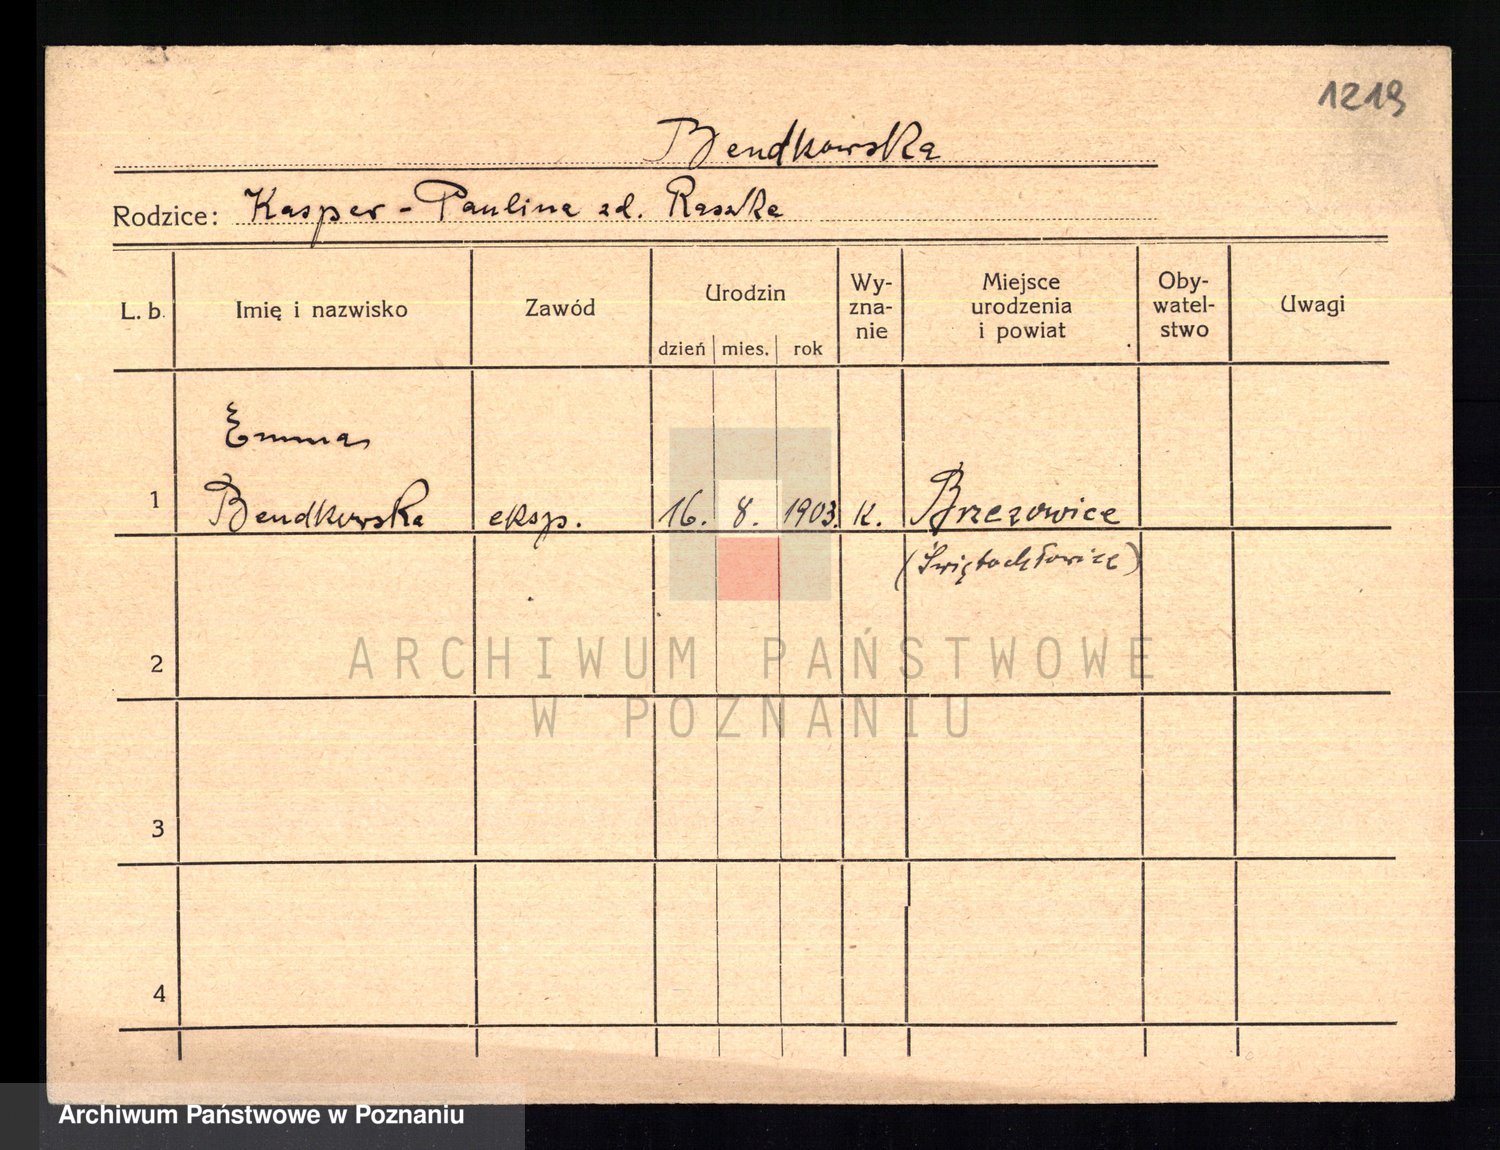 1219
Bendkowska
Rodzice: Kasper - Paulina zd. Raszka
L. b. Imię i nazwisko Zawód Urodzin Wy-zna-nie Miejsce urodzenia i powiat Oby-watel-stwo Uwagi
dzień mies. rok
Emma
1 Bendkowska eksp. 16. 8. 1903. k. Brzezowice
(Świętochłowice)
2
ARCHIWUM PAŃSTWOWE
W POZNANIU
3
4
Archiwum Państwowe w Poznaniu